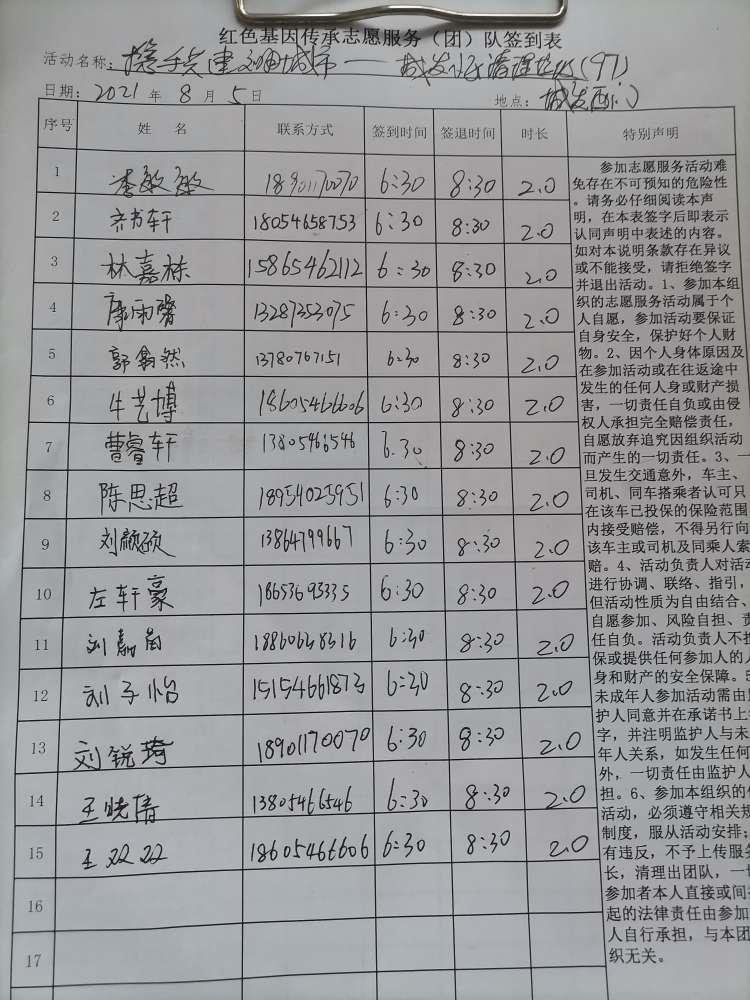 红色基因传承志愿服务（团）队签到表
活动名称：携手共建文明城市——城发 清理垃圾(97)
日期：2021年8月5日 地点：城发西门
序号 姓 名 联系方式 签到时间 签退时间 时长 特别声明
1 李敏敏 18901170070 6:30 8:30 2.0
2 齐书轩 18054658753 6:30 8:30 2.0
3 林嘉栋 15865462112 6:30 8:30 2.0
4 康雨馨 13287353075 6:30 8:30 2.0
5 郭鑫然 13780767151 6:30 8:30 2.0
6 牛艺博 18605466606 6:30 8:30 2.0
7 曹睿轩 13805466546 6.30 8:30 2.0
8 陈思超 18954025951 6:30 8:30 2.0
9 刘颜硕 13864799667 6:30 8:30 2.0
10 左轩豪 18653695335 6:30 8:30 2.0
11 刘嘉 18860648316 6:30 8:30 2.0
12 刘子怡 15154661873 6:30 8:30 2.0
13 刘锐琦 18901170070 6:30 8:30 2.0
14 王晓倩 13805466546 6:30 8:30 2.0
15 王双双 18605466606 6:30 8:30 2.0
16
17
参加志愿服务活动难
免存在不可预知的危险性
。请务必仔细阅读本声
明，在本表签字后即表示
认同声明中表述的内容。
如对本说明条款存在异议
或不能接受，请拒绝签字
并退出活动。1、参加本组
织的志愿服务活动属于个
人自愿，参加活动要保证
自身安全，保护好个人财
物。2、因个人身体原因及
在参加活动或在往返途中
发生的任何人身或财产损
害，一切责任自负或由侵
权人承担完全赔偿责任，
自愿放弃追究因组织活动
而产生的一切责任。3、一
旦发生交通意外，车主、
司机、同车搭乘者认可只
在该车已投保的保险范围
内接受赔偿，不得另行向
该车主或司机及同乘人索
赔。4、活动负责人对活动
进行协调、联络、指引，
但活动性质为自由结合、
自愿参加、风险自担、责
任自负。活动负责人不担
保或提供任何参加人的人
身和财产的安全保障。5
未成年人参加活动需由监
护人同意并在承诺书上签
字，并注明监护人与未成
年人关系，如发生任何
外，一切责任由监护人
担。6、参加本组织的任
活动，必须遵守相关规
制度，服从活动安排；
有违反，不予上传服务
长，清理出团队，一切
参加者本人直接或间接
起的法律责任由参加
人自行承担，与本团
织无关。